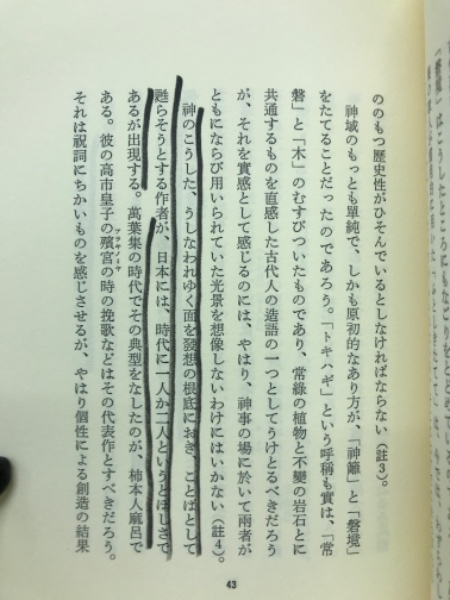 ののもつ歴史性がひそんでいるとしなければならない（註3）。
神域のもっとも單純で、しかも原初的なあり方が、「神籬」と「磐境」
をたてることだったのであろう。「トキハギ」という呼稱も實は、「常
磐」と「木」のむすびついたものであり、常綠の植物と不變の岩石とに
共通するものを直感した古代人の造語の一つとしてうけとるべきだろう
が、それを實感として感じるのには、やはり、神事の場に於いて兩者が
ともにならび用いられていた光景を想像しないわけにはいかない（註4）。
神のこうした、うしなわれゆく面を發想の根底におき、ことばとして
甦らそうとする作者が、日本には、時代に一人か二人というとぼしさで
あるが出現する。萬葉集の時代でその典型をなしたのが、柿本人麻呂で
ある。彼の高市皇子の殯宮の時の挽歌などはその代表作とすべきだろう。
アラキノミヤ
それは祝詞にちかいものを感じさせるが、やはり個性による創造の結果
43